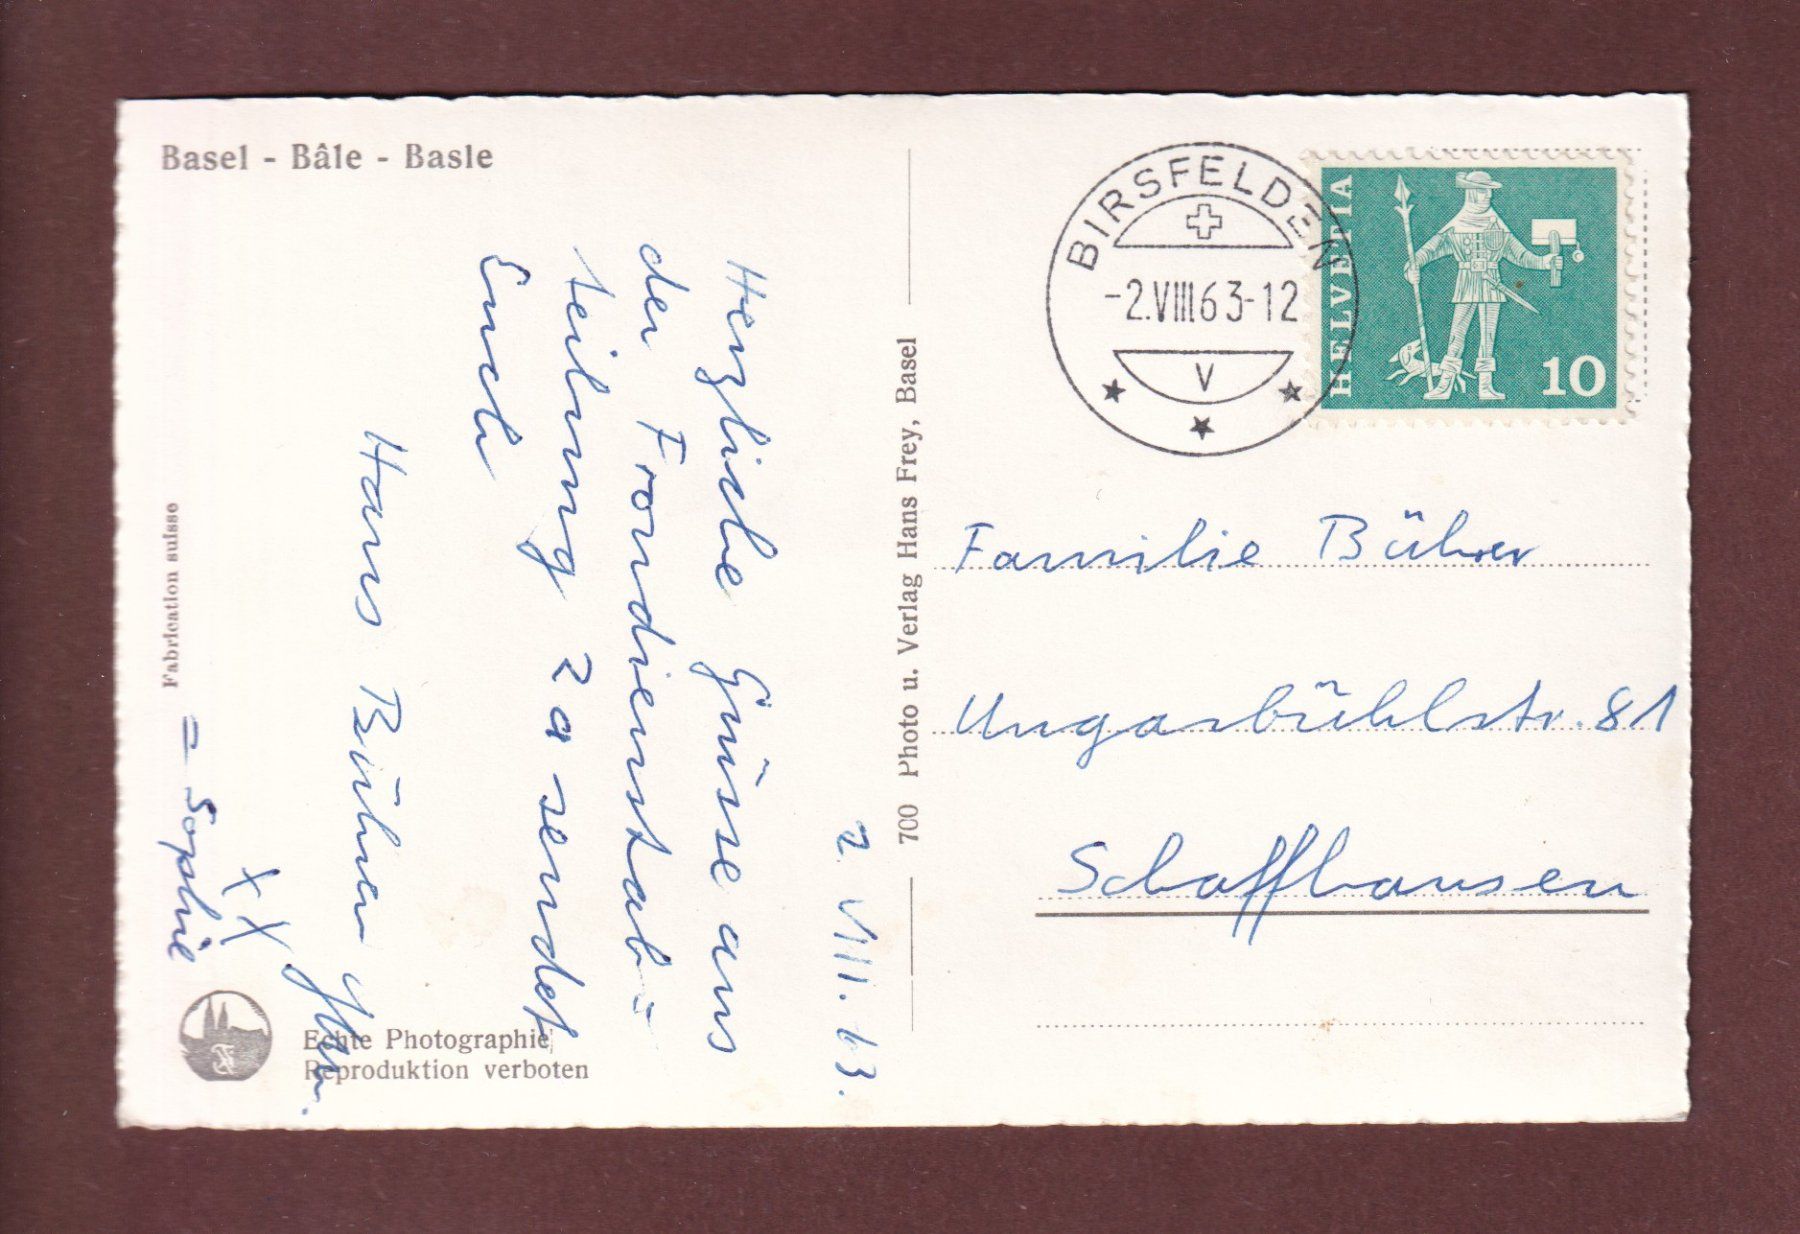 Basel - Bâle - Basle
2. VIII. 63.
Herzliche Grüsse aus
der Frondienstab-
teilung 2a sendet
Euch
Hans Bührer
XX
= Sophie
Fabrication suisse
Echte Photographie
Reproduktion verboten
700 Photo u. Verlag Hans Frey, Basel
BIRSFELDEN
-2.VIII63-12
V
HELVETIA
10
Familie Bührer
Ungarbühlstr. 81
Schaffhausen